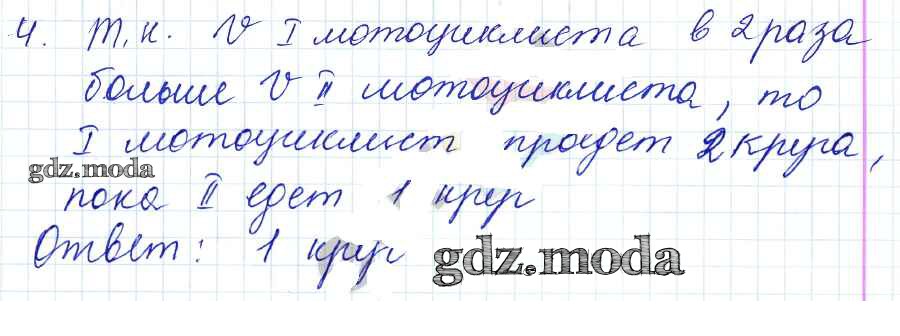 4. Т.к. V I мотоциклиста в 2 раза
больше V II мотоциклиста, то
I мотоциклист пройдет 2 круга,
gdz.moda
пока II едет 1 круг
Ответ: 1 круг
gdz.moda